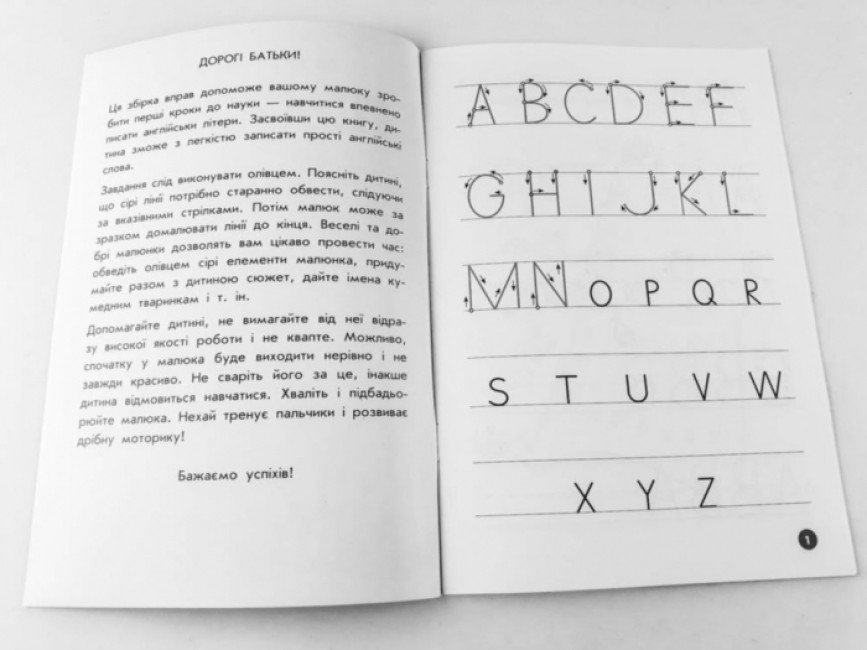 ДОРОГІ БАТЬКИ!
Ця збірка вправ допоможе вашому малюку зро-
бити перші кроки до науки — навчитися впевнено
писати англійськи літери. Засвоївши цю книгу, ди-
тина зможе з легкістю записати прості англійські
слова.
Завдання слід виконувати олівцем. Поясніть дитині,
що сірі лінії потрібно старанно обвести, слідуючи
за вказівними стрілками. Потім малюк може за
зразком домалювати лінії до кінця. Веселі та до-
брі малюнки дозволять вам цікаво провести час:
обведіть олівцем сірі елементи малюнка, приду-
майте разом з дитиною сюжет, дайте імена ку-
медним тваринкам і т. ін.
Допомагайте дитині, не вимагайте від неї відра-
зу високої якості роботи і не квапте. Можливо,
спочатку у малюка буде виходити нерівно і не
завжди красиво. Не сваріть його за це, інакше
дитина відмовиться навчатися. Хваліть і підбадьо-
рюйте малюка. Нехай тренує пальчики і розвиває
дрібну моторику!
Бажаємо успіхів!
A B C D E F
G H I J K L
M N O P Q R
S T U V W
X Y Z
1